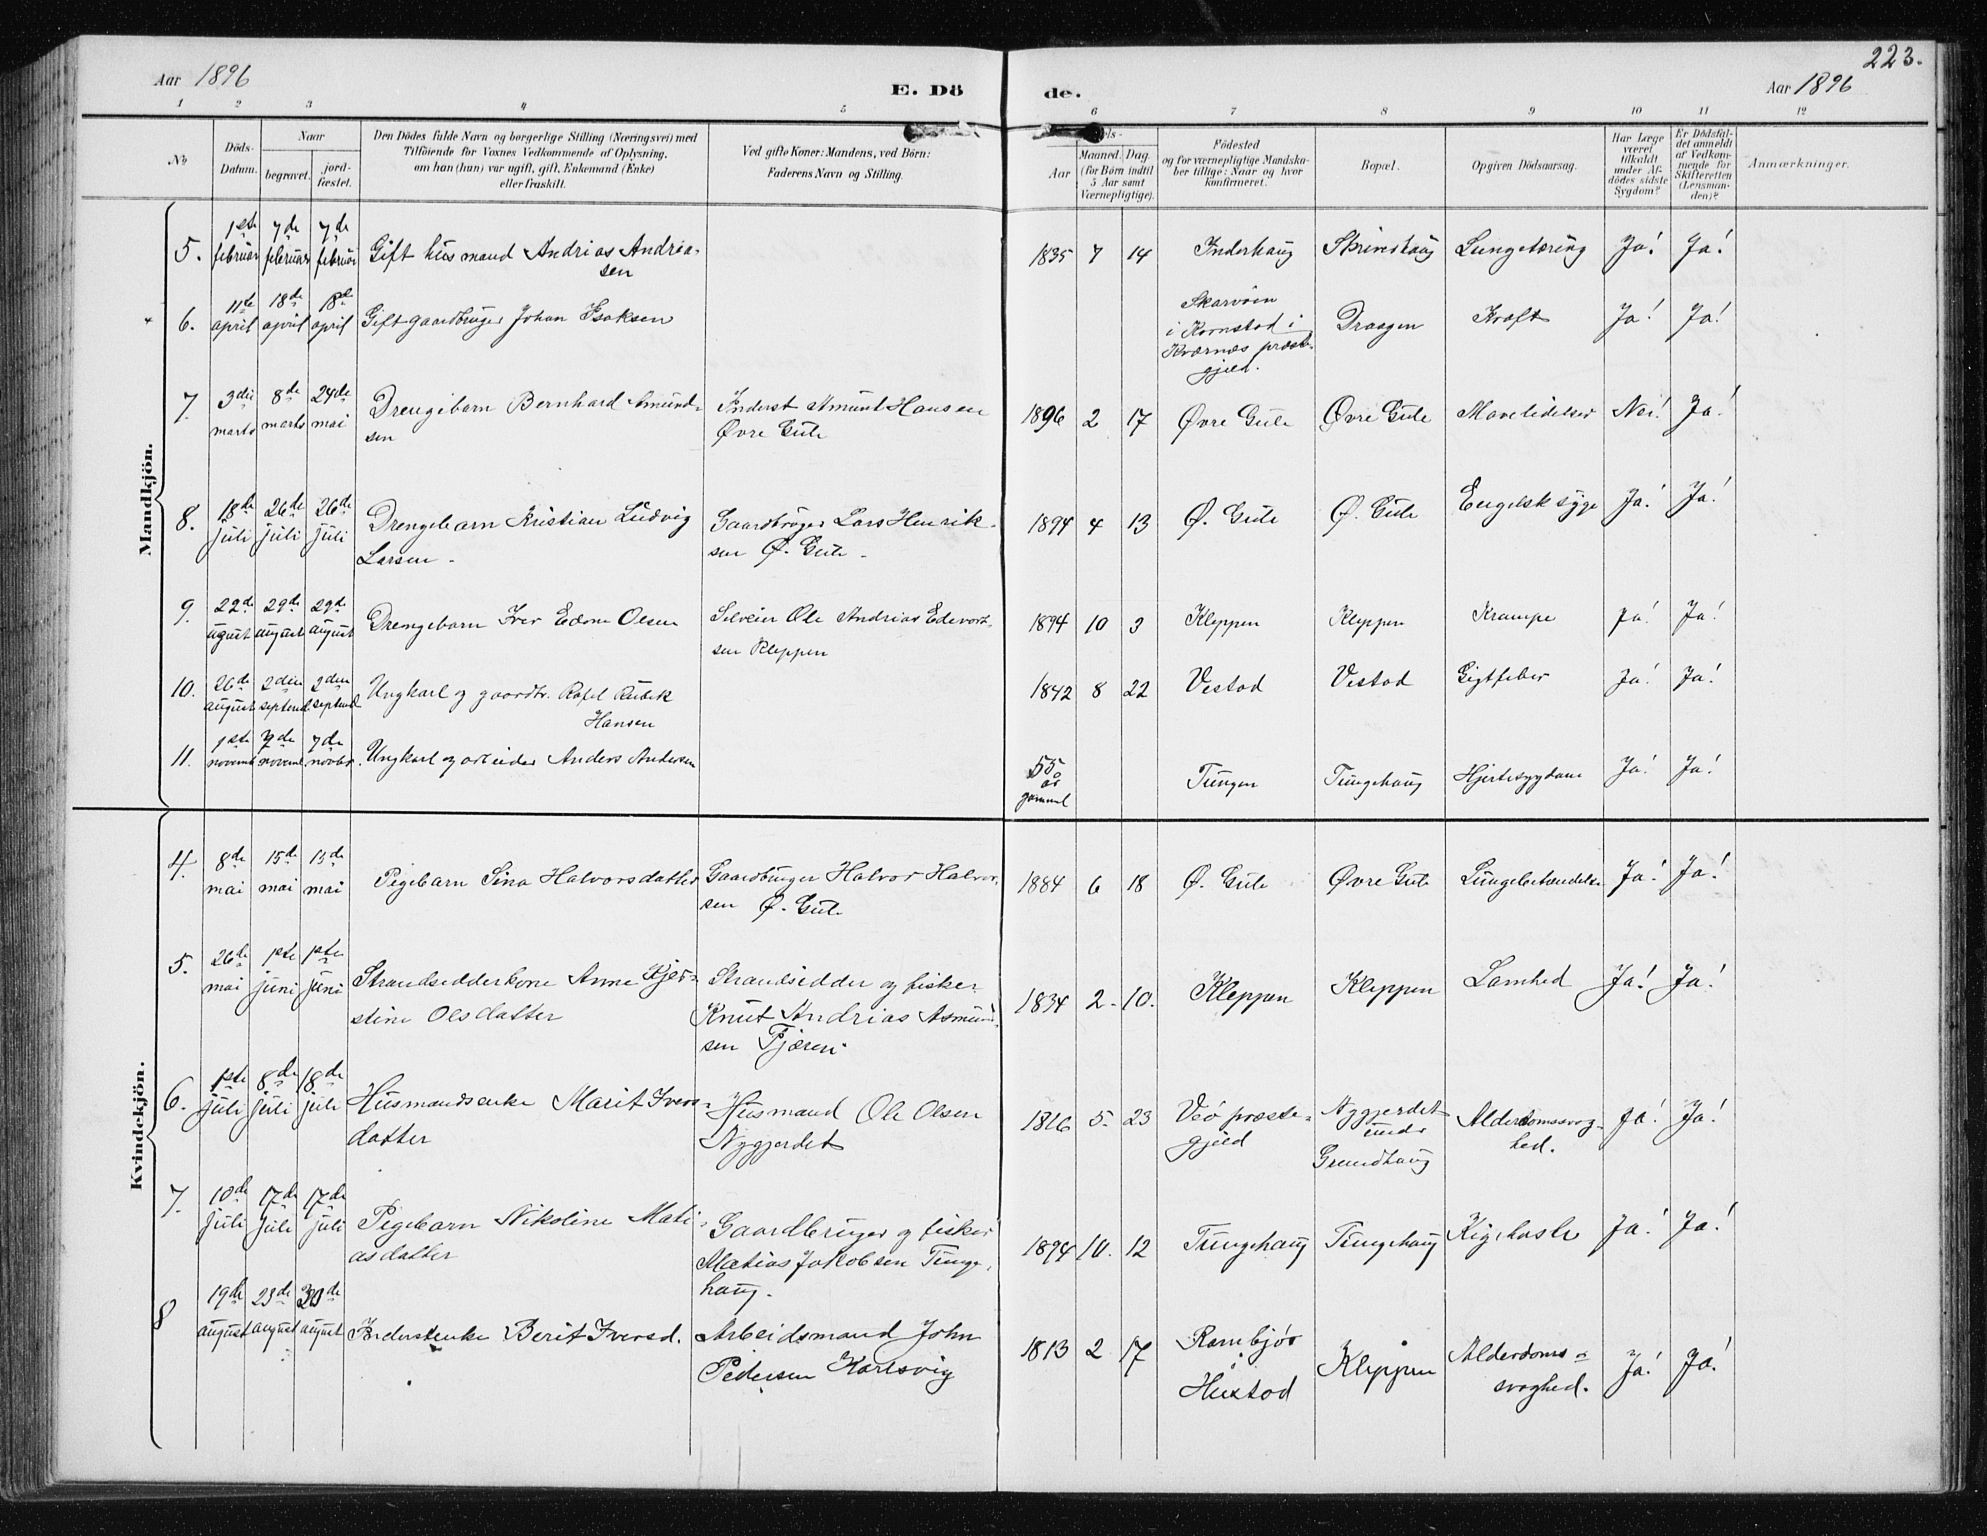 223.
Aar 1896
E. Dö
de.
Aar 1896
1 2 3 4 5 6 7 8 9 10 11 12
No
Döds-
Datum.
Naar
begravet.
jord-
fæstet.
Den Dödes fulde Navn og borgerlige Stilling (Næringsvei) med
Tilföiende for Voxnes Vedkommende af Oplysning,
om han (hun) var ugift, gift, Enkemand (Enke)
eller fraskilt.
Ved gifte Koner: Mandens, ved Börn:
Faderens Navn og Stilling.
els-
Aar
Maaned. Dag.
(for Børn indtil
5 Aar samt
Værnepligtige).
Födested
og for værnepligtige Mandska-
ber tillige: Naar og hvor
konfirmeret.
Bopæl.
Opgiven Dödsaarsag.
Har Læge
været
tilkaldt
under Af-
dödes sidste
Sygdom?
Er Dödsfal-
det anmeldt
af Vedkom-
mende for
Skifteretten
(Lensman-
den)?
Anmærkninger.
Mandkjön.
5. 1ste februar 7de februar 7de februar Gift husmand Andrias Andrea-
sen
1835 7 14 Inderhaug Skrinshaug Lungetæring Ja! Ja!
6. 11te april 18de april 18de april Gift gaardbruger Johan Isaksen
Skarvöen
i Kornstad i
Kværnæs præste-
gjeld.
Draagen Kræft Ja! Ja!
7. 3die marts 8de marts 24de mai Drengebarn Bernhard Amund-
sen
Inderst Amund Hansen
Øvre Gule
1896 2 17 Øvre Gule Øvre Gule Mavelidelser Nei! Ja!
8. 18de juli 26de juli 26de juli Drengebarn Kristian Ludvig
Larsen
Gaardbruger Lars Henrik-
sen Ø. Gule
1894 4 13 Ø. Gule Ø. Gule Engelsk syge Ja! Ja!
9. 22de august 29de august 29de august Drengebarn Iver Edvne Olsen
Selveier Ole Andrias Edevart-
sen Kleppen
1894 10 3 Kleppen Kleppen Krampe Ja! Ja!
10. 26de august 2den septemb. 2den septemb. Ungkarl og gaardbr. Rafel Rubek
Hansen
1842 8 22 Vestad Vestad Gigtfeber Ja! Ja!
11. 1ste novemb. 7de novemb. 7de novbr. Ungkarl og arbeider Anders Andersen
55 år
gammel
Tungen Tungehaug Hjertesygdom Ja! Ja!
Kvindekjön.
4. 8de mai 15de mai 15de mai Pigebarn Sina Halvorsdatter
Gaardbruger Halvor Halvor-
sen Ø. Gule
1884 6 18 Ø. Gule Øvre Gule Lungebetændelse Ja! Ja!
5. 26de mai 1ste juni 1ste juni Strandsidderkone Anne Kjer-
stine Olsdatter
Strandsidder og fisker
Knut Andrias Asmund-
sen Fjæren
1834 2 10. Kleppen Kleppen Lamhed Ja! Ja!
6. 1ste juli 8de juli 18de juli Husmandsenke Marit Ivers-
datter
Husmand Ole Olsen
Nygjerdet
1816 5 23 Veö præste-
gjeld
Nygjerdet
under
Grundhaug
Alderdomssvag-
hed.
Ja! Ja!
7. 10de juli 17de juli 17de juli Pigebarn Nikoline Mati-
asdatter
Gaardbruger og fisker
Matias Jakobsen Tunge-
haug.
1894 10. 12 Tungehaug Tungehaug Kighoste Ja! Ja!
8 19de august 23de august 30de august Inderstenke Berit Iversd.
Arbeidsmand John
Pedersen Karlsvig
1813 2 17 Rambjör
i
Hustad
Kleppen Alderdoms-
svaghed.
Ja! Ja!